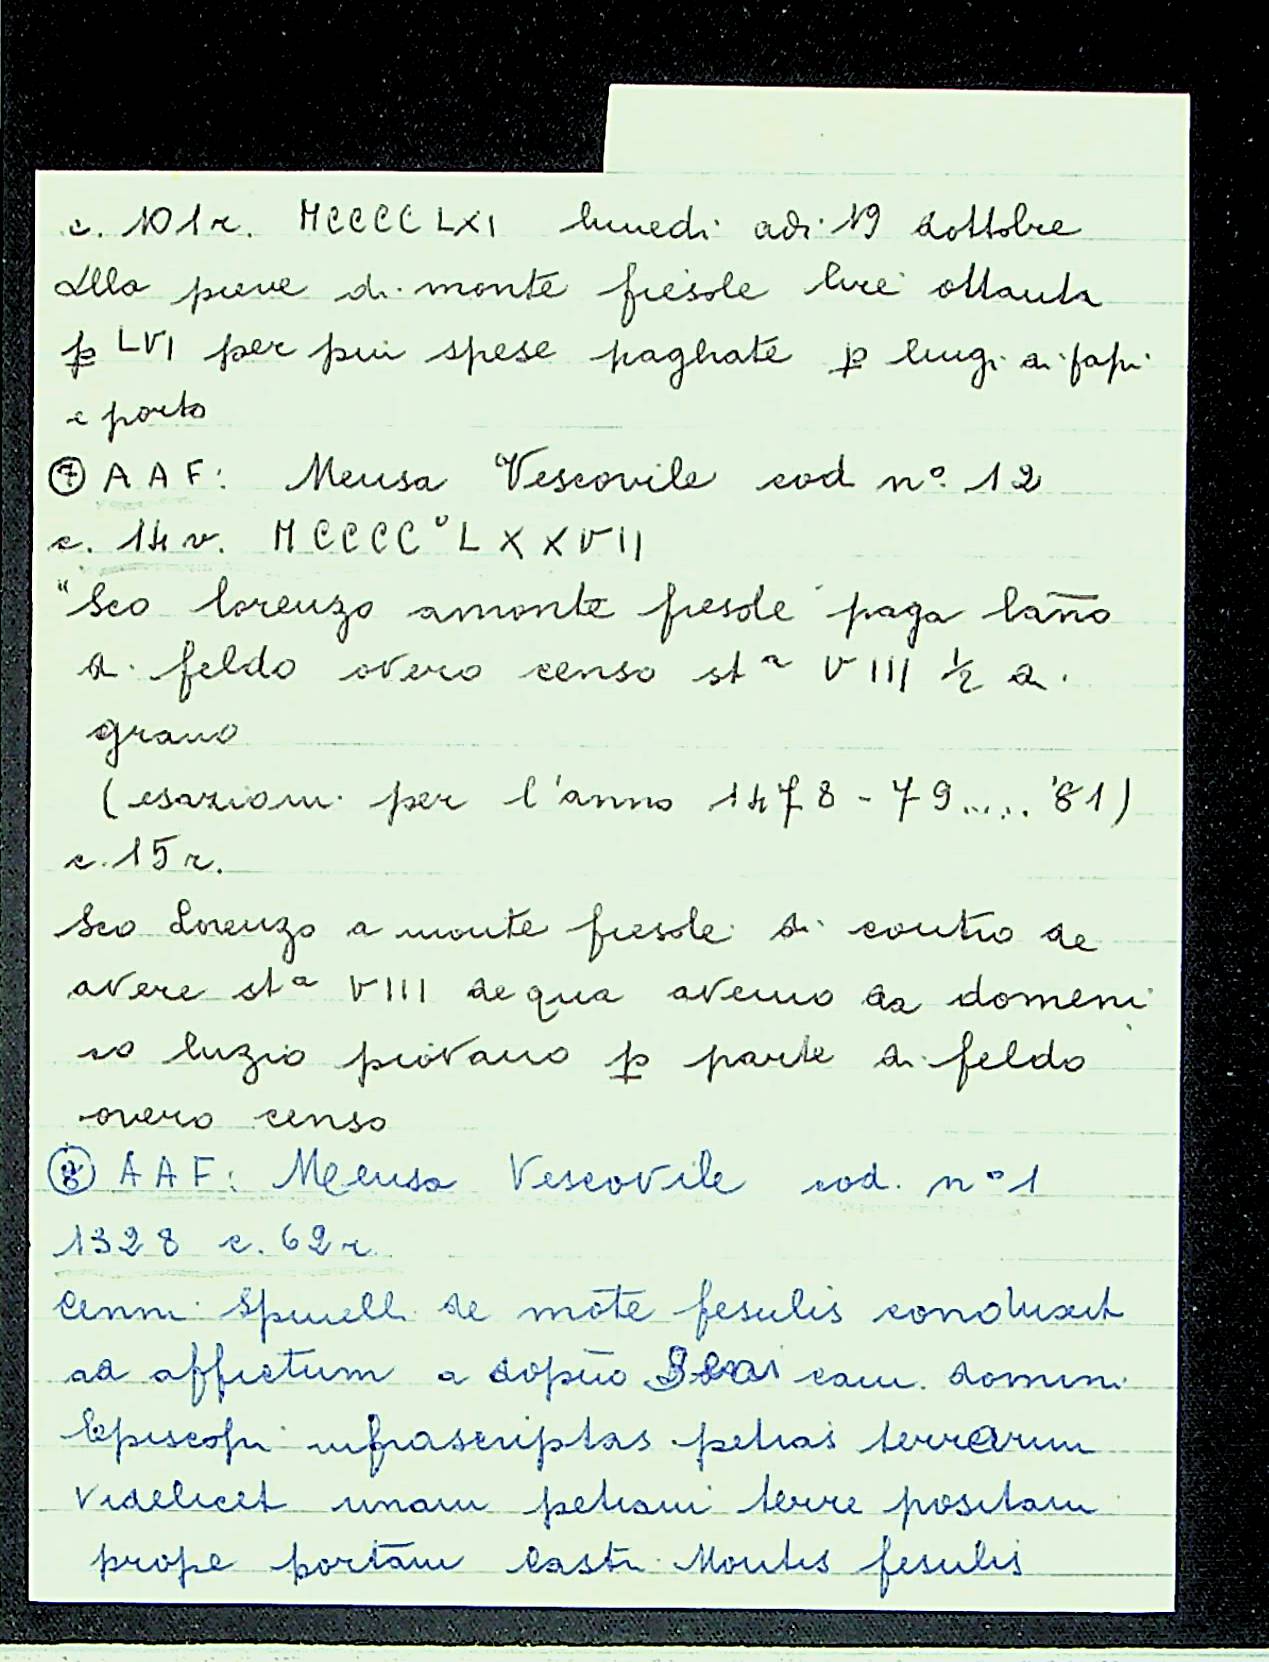 c. 101r. MCCCCLXI lunedi adi 19 dottobre
Alla pieve di monte fiesole lire ottanta
p LVI per piu spese paghate p luigi di papi
e porto
⑦ AAF: Mensa Vescovile cod n°. 12
c. 14v. MCCCC°LXXVII
"Sco lorenzo amonte fiesole paga lano
di feldo overo censo stª VIII ½ di
grano
(esazioni per l'anno 1478-79..... '81)
c. 15r.
Sco Lorenzo a monte fiesole di contro de
avere stª VIII de qua avemo da domeni
co luzio piovano p parte di feldo
overo censo
⑧ AAF: Mensa Vescovile cod. n° 1
1328 c. 62r.
Cenni Spinelli de mōte fesulis conduxit
ad affictum a dopño cam. domini
Episcopi infrascriptas petias terrarum
videlicet unam petiam terre positam
prope portam castri Montis fesulis